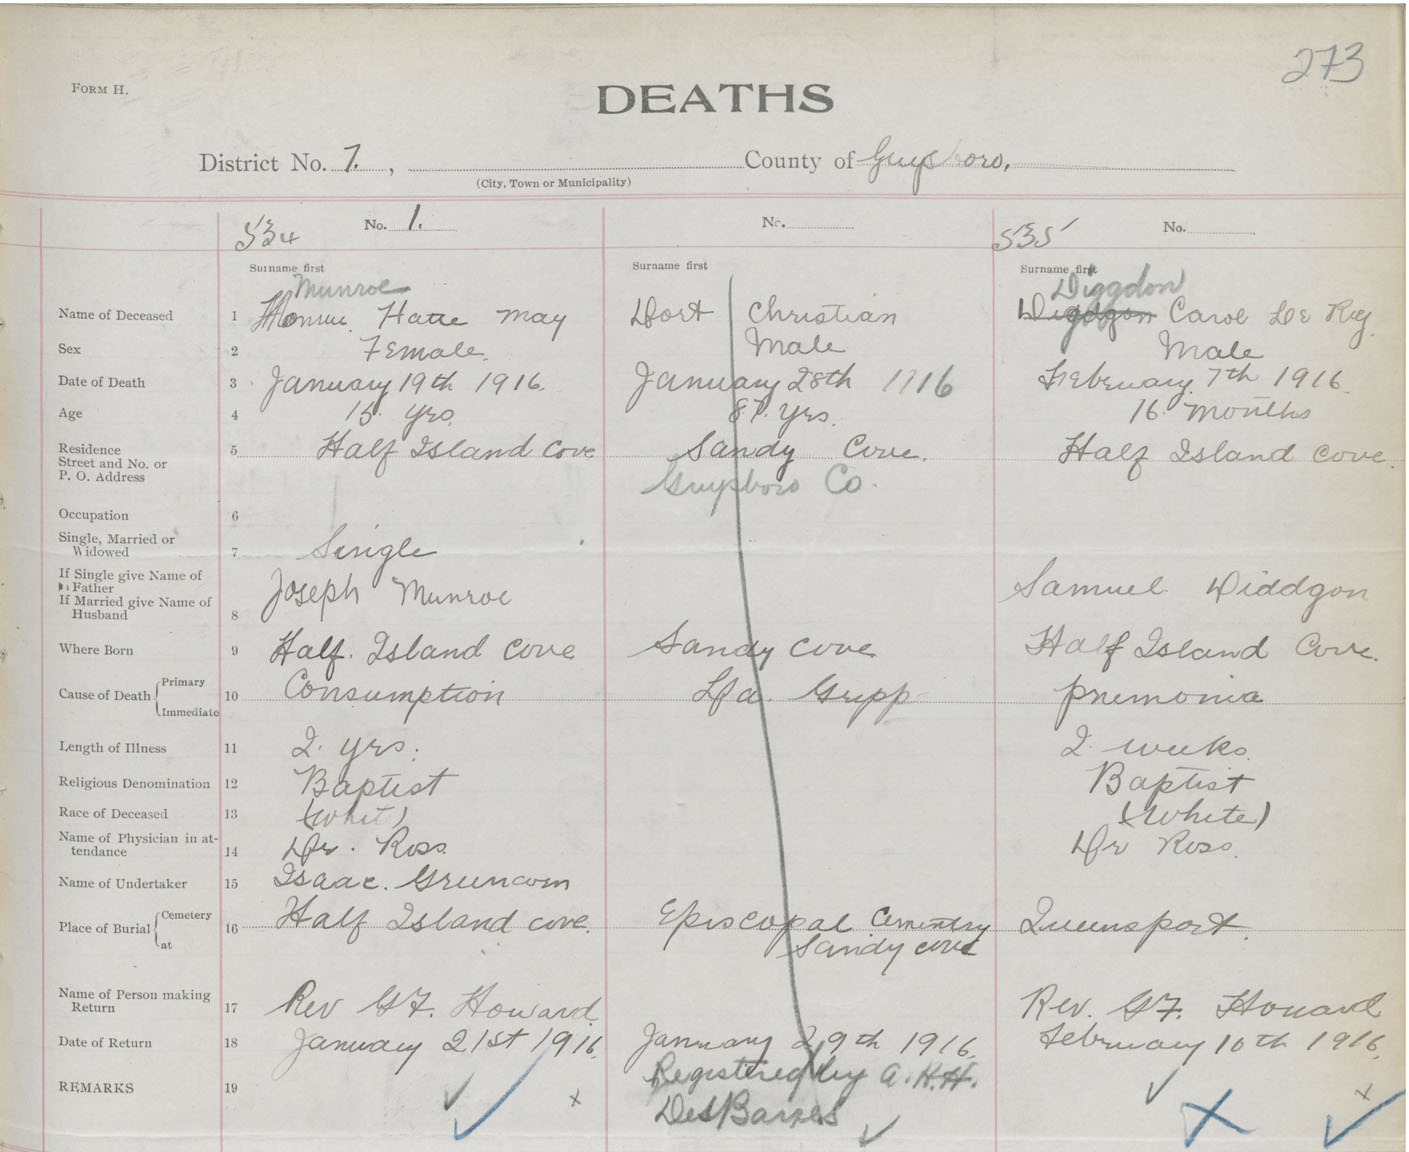 273
FORM H.
DEATHS
District No. 7. , County of Guysboro,
(City, Town or Municipality)
534 No. 1. No. 535 No.
Surname first Surname first Surname first
Munroe Diggdon
Name of Deceased 1 Hattie May Dort Christian Carol De Ray
Sex 2 Female. Male Male
Date of Death 3 January 19th 1916. January 28th 1916 February 7th 1916.
Age 4 15 yrs. 87. yrs. 16 Months
Residence
Street and No. or
P. O. Address 5 Half Island Cove Sandy Cove. Half Island Cove.
Guysboro Co.
Occupation 6
Single, Married or
Widowed 7 Single
If Single give Name of
Father
If Married give Name of
Husband 8 Joseph Munroe Samuel Diddgon
Where Born 9 Half. Island Cove Sandy Cove Half Island Cove.
Cause of Death Primary
Immediate 10 Consumption La. Gripp pnemonia
Length of Illness 11 2 yrs. 2 weeks.
Religious Denomination 12 Baptist Baptist
Race of Deceased 13 (Whit) (White)
Name of Physician in at-
tendance 14 Dr. Ross. Dr Ross.
Name of Undertaker 15 Isaac.
Place of Burial Cemetery
at 16 Half Island cove. Episcopal Cementry Queensport.
Sandy cove
Name of Person making
Return 17 Rev G F. Howard. Rev. G F. Howard
Date of Return 18 January 21st 1916. January 29th 1916. February 10th 1916.
REMARKS 19 Registered by A. H. H.
DesBarres